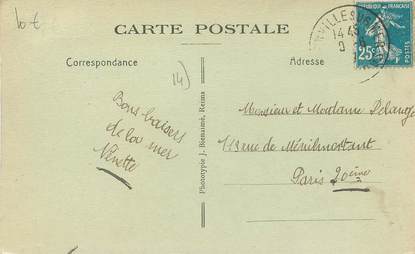 10 €
CARTE POSTALE
Correspondance
Adresse
14)
RÉPUBLIQUE FRANÇAISE
25c
POSTES
VILLE SUR MER
14 45
Bons baisers
de la mer
Ninette
Phototypie J. Bienaimé, Reims
Monsieur et Madame
rue de Ménilmontant
Paris 20ème